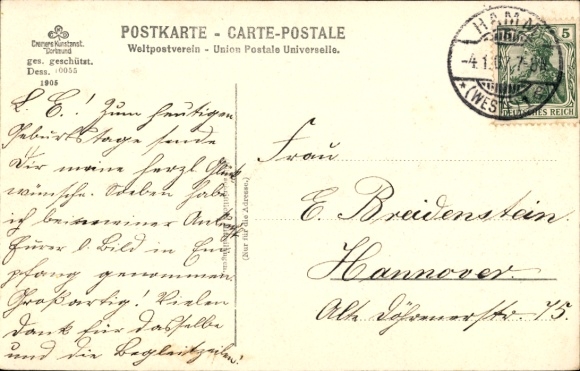 POSTKARTE - CARTE-POSTALE
Weltpostverein - Union Postale Universelle.
Cramers Kunstanst.
Dortmund
ges. geschützt.
Dess. 10055
1905
HAMM
-4.1.07.7-8
(WESTF.)
5
DEUTSCHES REICH
L. E.! Zum heutigen
Geburtstage sende
Dir meine herzl. Glück
wünsche. Soeben habe
ich bei meiner Ankunft
Euer l. Bild in Em
pfang genommen.
Großartig! Vielen
Dank für dasselbe
und die Begleitzeilen!
(Nur für die Adresse.)
Frau
E. Breidenstein.
Hannover.
Alte Döhrenerstr. 75.